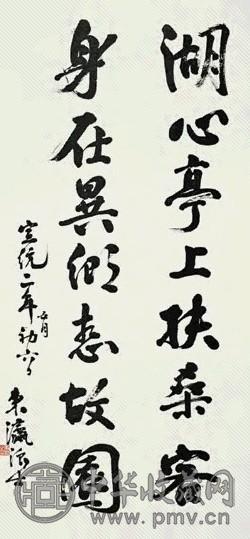 湖心亭上扶桑客
身在異鄉愁故園
宣統二年
東瀛浪士
中华收藏网
www.pmv.cn